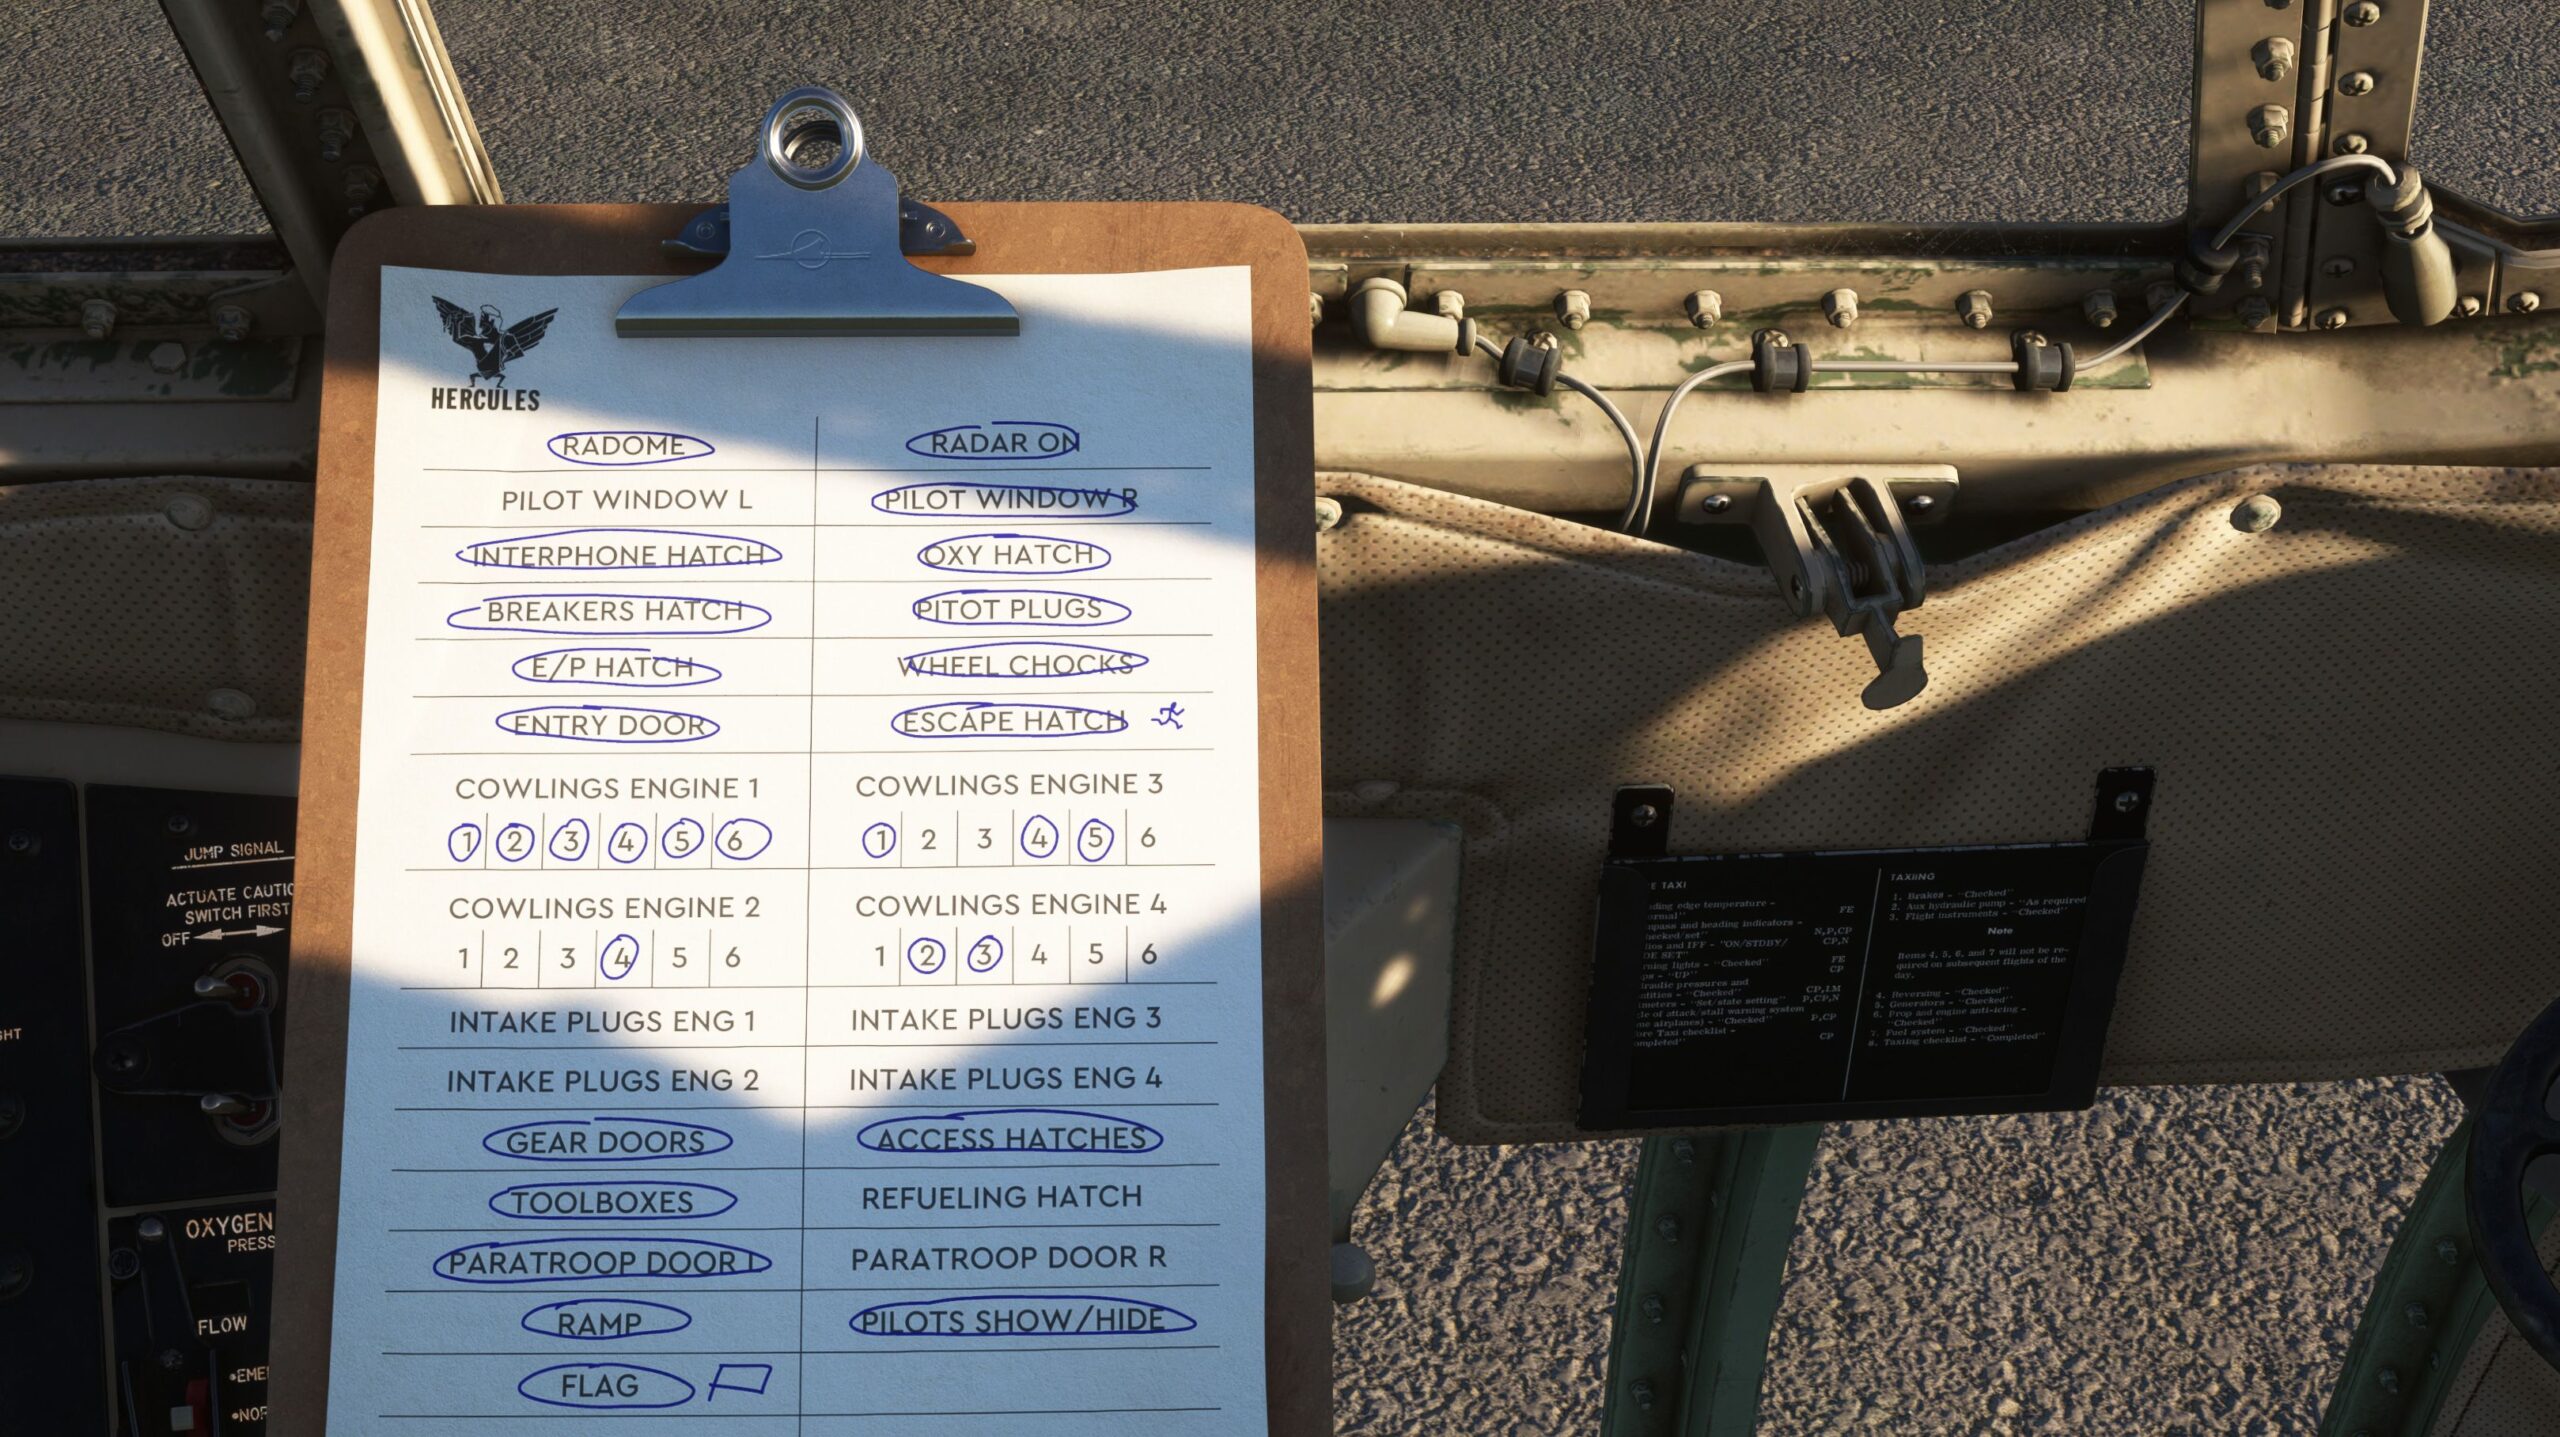 HERCULES
RADOME RADAR ON
PILOT WINDOW L PILOT WINDOW R
INTERPHONE HATCH OXY HATCH
BREAKERS HATCH PITOT PLUGS
E/P HATCH WHEEL CHOCKS
ENTRY DOOR ESCAPE HATCH
COWLINGS ENGINE 1 COWLINGS ENGINE 3
1 2 3 4 5 6 1 2 3 4 5 6
COWLINGS ENGINE 2 COWLINGS ENGINE 4
1 2 3 4 5 6 1 2 3 4 5 6
INTAKE PLUGS ENG 1 INTAKE PLUGS ENG 3
INTAKE PLUGS ENG 2 INTAKE PLUGS ENG 4
GEAR DOORS ACCESS HATCHES
TOOLBOXES REFUELING HATCH
PARATROOP DOOR L PARATROOP DOOR R
RAMP PILOTS SHOW/HIDE
FLAG
JUMP SIGNAL
ACTUATE CAUTIO
SWITCH FIRST
OFF
GHT
OXYGEN
PRESS
FLOW
•EME
•NOR
E TAXI
ding edge temperature -
ormal" FE
mpass and heading indicators -
hecked/set" N,P,CP
ios and IFF - "ON/STDBY/ CP,N
DE SET"
rning lights - "Checked" FE
ps - "UP" CP
raulic pressures and
ntities - "Checked" CP,LM
meters - "Set/state setting" P,CP,N
le of attack/stall warning system
me airplanes) - "Checked" P,CP
ore Taxi checklist -
ompleted" CP
TAXIING
1. Brakes - "Checked"
2. Aux hydraulic pump - "As required
3. Flight instruments - "Checked"
Note
Items 4, 5, 6, and 7 will not be re-
quired on subsequent flights of the
day.
4. Reversing - "Checked"
5. Generators - "Checked"
6. Prop and engine anti-icing -
"Checked"
7. Fuel system - "Checked"
8. Taxiing checklist - "Completed"